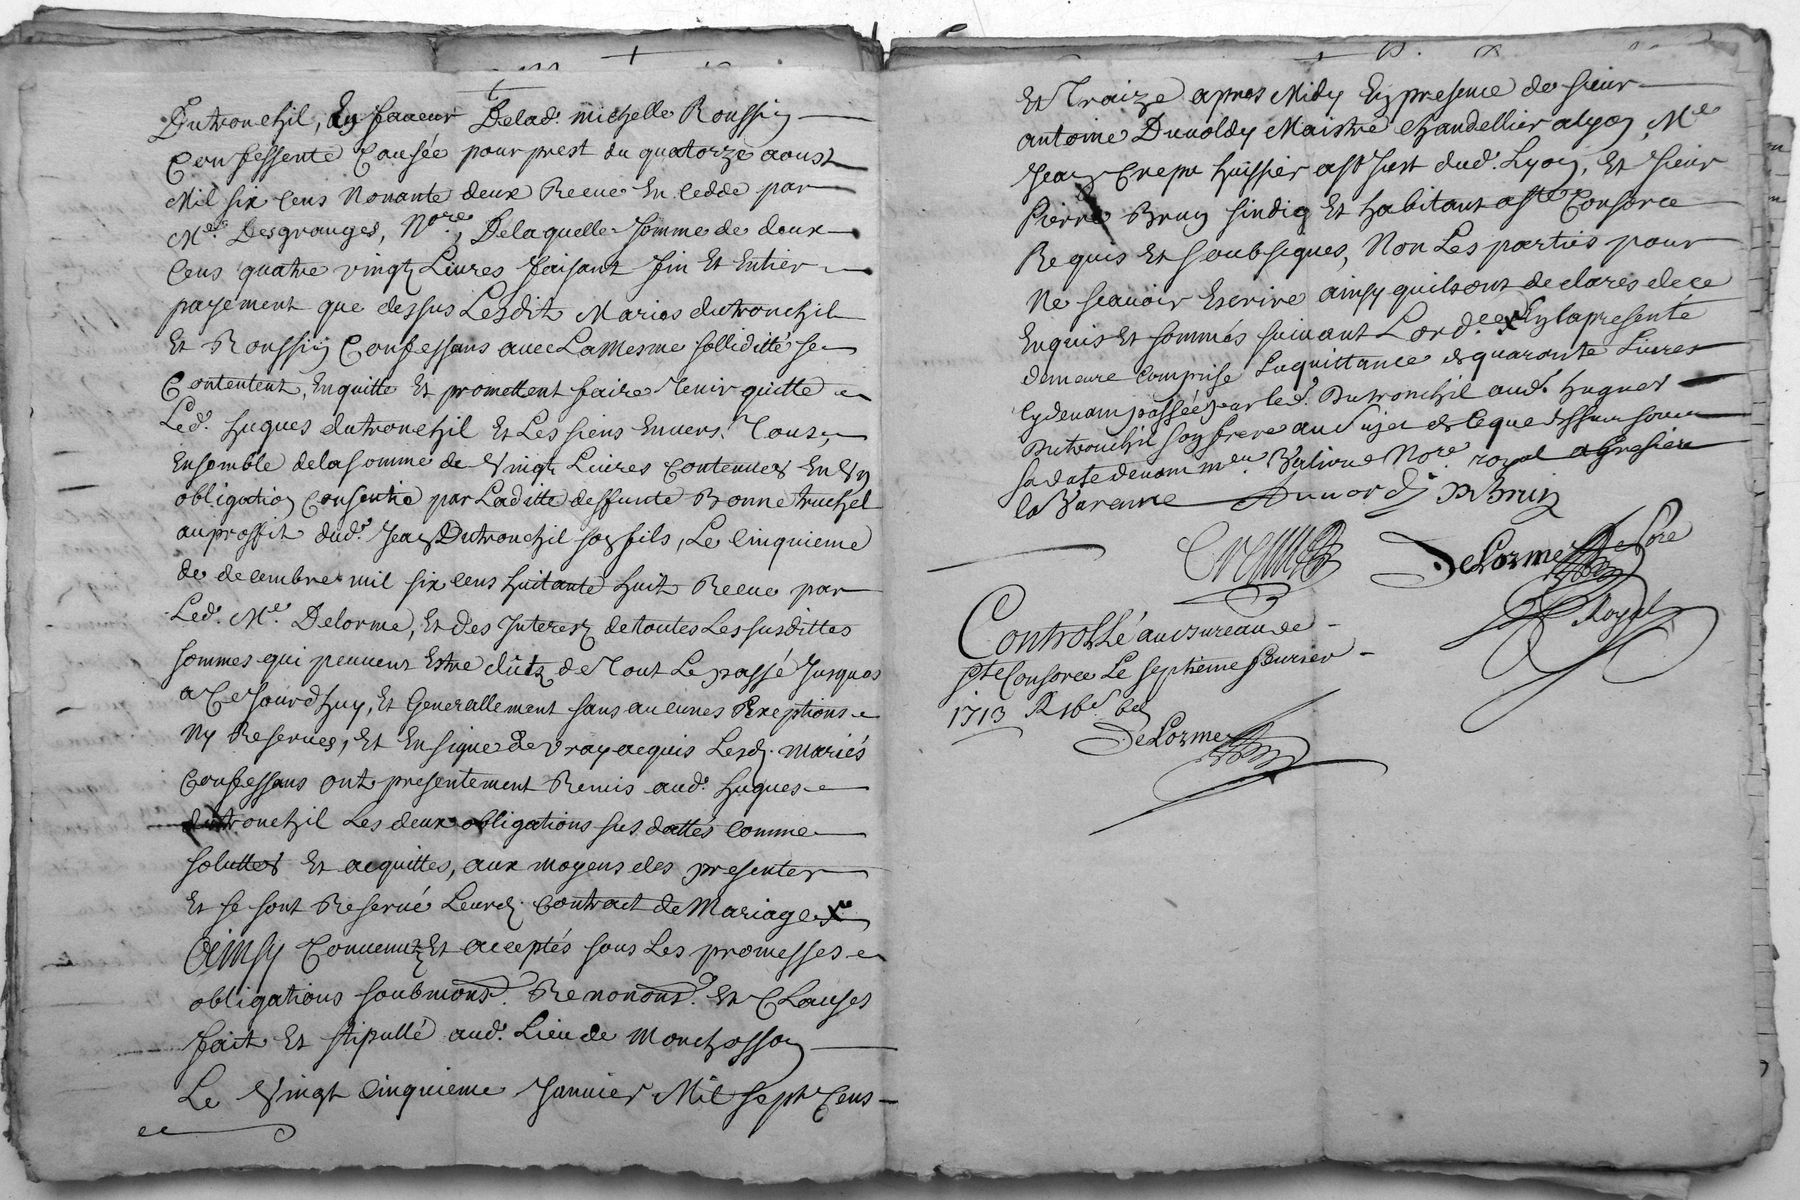 Dutronchil, En faveur Delad. michelle Roussin
Confessente Causée pour prest du quatorze aoust
Mil six Cens Nonante deux Receue En cedde par
Me. Desgranges, Nore, De laquelle somme de deux
Cens quatre vingt Livres faisant fin Et Entier
payement que dessus Lesdit Maries dutronchil
Et Roussin Confessans avec La Mesme solliditté se
Contentent, Enquitte Et promettent faire Tenir quitte
Led. hugues dutronchil Et Les siens Envers Tous,
Ensemble de la somme de Vingt Livres Contenues En Un
obligation Consentie par Laditte deffunte Bonne truchel
au proffit dud. Jean Dutronchil son fils, Le Cinquieme
de decembre mil six cens huitante huit Receue par
Led. Me. Delorme, Et des Interestz de toutes Les susdittes
sommes qui peuvent Estre dûtz de Tout Le passé Jusques
a Ce Jourdhuy, Et Generallement sans aucunes Exceptions
Ny Reserves, Et En signe de vray acquis Lesd. mariés
Confessans ont presentement Remis aud. hugues
dutronchil Les deux obligations sus dattés Comme
soluttes Et acquittes, aux moyens des presentes
Et se sont Reservé Leurd. Contract de Mariage
Ainsy Convenuz Et acceptés sous Les promesses
obligations soubmons. Renonons. Et Clauses
fait Et stipullé aud. Lieu de Monchosson
Le Vingt Cinquieme Janvier Mil sept Cens
Et Traize apres Midy En presence de sieur
antoine Duvoldy Maistre Chandellier a lyon, Me
Jean huissier dud. Lyon, Et sieur
Pierre Brun sindiq Et habitant a Ste Consorce
Requis Et soubsignes, Non Les parties pour
Ne scavoir Escrire ainsy quils ont declares de ce
Enquis Et sommés suivant Lord.ce En la presente
demeure Comprise La quittance de quarante Livres
Cy devant passée par led. Dutronchil aud. hugues
Dutronchil son frere au sujet de ce que dessus sous
sa date devant me. Nore. royal a Gresieu
la Varenne Duvordi P Brun
DeLorme Nore
Royal
Controllé au bureau de
Ste Consorce Le septieme fevrier
1713 R
DeLorme